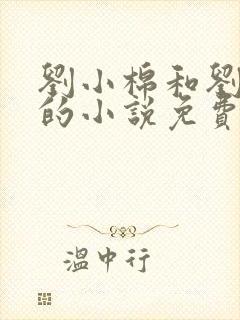 劉小棉和劉
的小說免費
溫中行